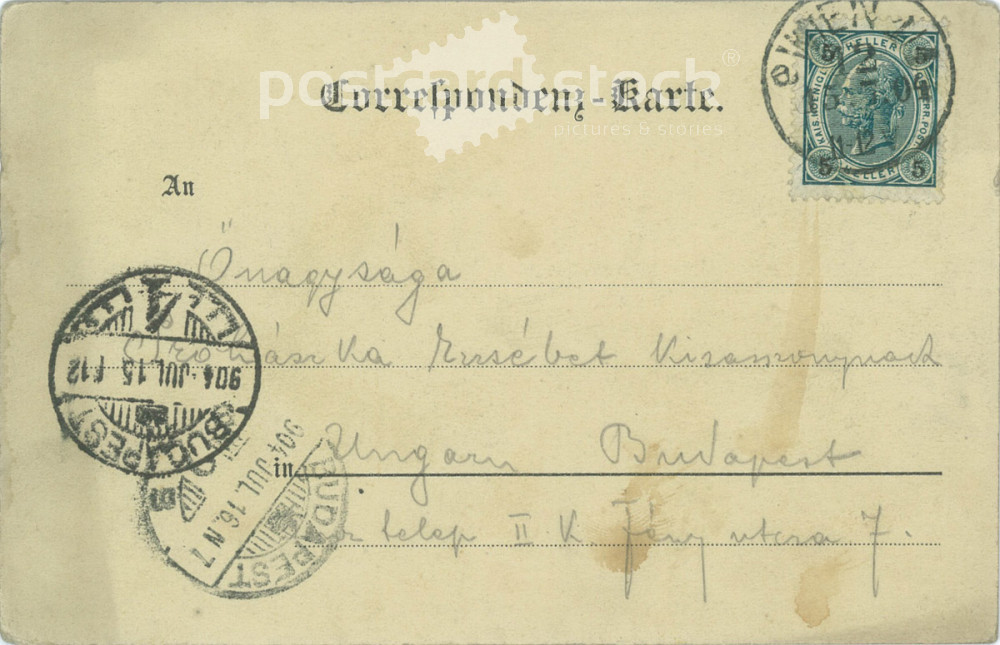 postcardstock®
pictures & stories
Correspondenz-Karte.
WIEN
5 HELLER 5
KAIS. KOENIGL.
5 HELLER 5
An
Őnagysága
Erzsébet Kisasszonynak
in Ungarn Budapest
telep II. K. Fény utcza 7.
904 JUL. 15
BUDAPEST
904 JUL. 16. N 7
BUDAPEST